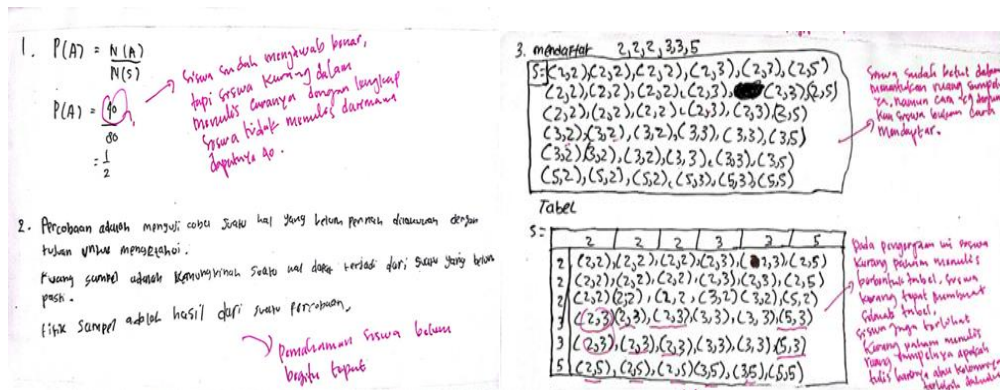 1. P(A) = N(A)
N(S)
P(A) = 40
80
= 1
2
Siswa sudah menjawab benar,
tapi siswa kurang dalam
menulis caranya dengan lengkap
siswa tidak menulis darimana
dapatnya 40.
2. Percobaan adalah menguji coba suatu hal yang belum pernah dilakukan dengan
tujuan untuk mengetahui.
Ruang sampel adalah kemungkinan suatu hal dapat terjadi dari suatu yang belum
pasti.
titik sampel adalah hasil dari suatu percobaan.
Pemahaman siswa belum
begitu tepat
3. mendaftar 2,2,2,3,3,5
S= (2,2),(2,2),(2,2),(2,3),(2,3),(2,5)
(2,2),(2,2),(2,2),(2,3), (2,3),(2,5)
(2,2),(2,2),(2,2),(2,3),(2,3),(2,5)
(3,2),(3,2),(3,2),(3,3),(3,3),(3,5)
(3,2),(3,2),(3,2),(3,3),(3,3),(3,5)
(5,2),(5,2),(5,2),(5,3),(5,3),(5,5)
Siswa sudah betul dalam
menentukan ruang sampel
ya, namun cara yg
siswa bukan cara
mendaftar.
Tabel
S=
2 2 2 3 3 5
2 (2,2),(2,2),(2,2),(2,3),(2,3),(2,5)
2 (2,2),(2,2),(2,2),(2,3),(2,3),(2,5)
2 (2,2)(2,2),(2,2,(3,2)(3,2),(5,2)
3 (2,3)(2,3),(2,3),(3,3),(3,3),(5,3)
3 (2,3),(2,3),(2,3),(3,3),(3,3),(5,3)
5 (2,5),(2,5),(2,5)(3,5),(3,5),(5,5)
Pada pengerjaan ini siswa
kurang paham menulis
berbentuk tabel. Siswa
kurang tepat membuat
sebuah tabel.
siswa juga terlihat
kurang paham menulis
ruang sampelnya apakah
tulis barisnya atau kolomnya